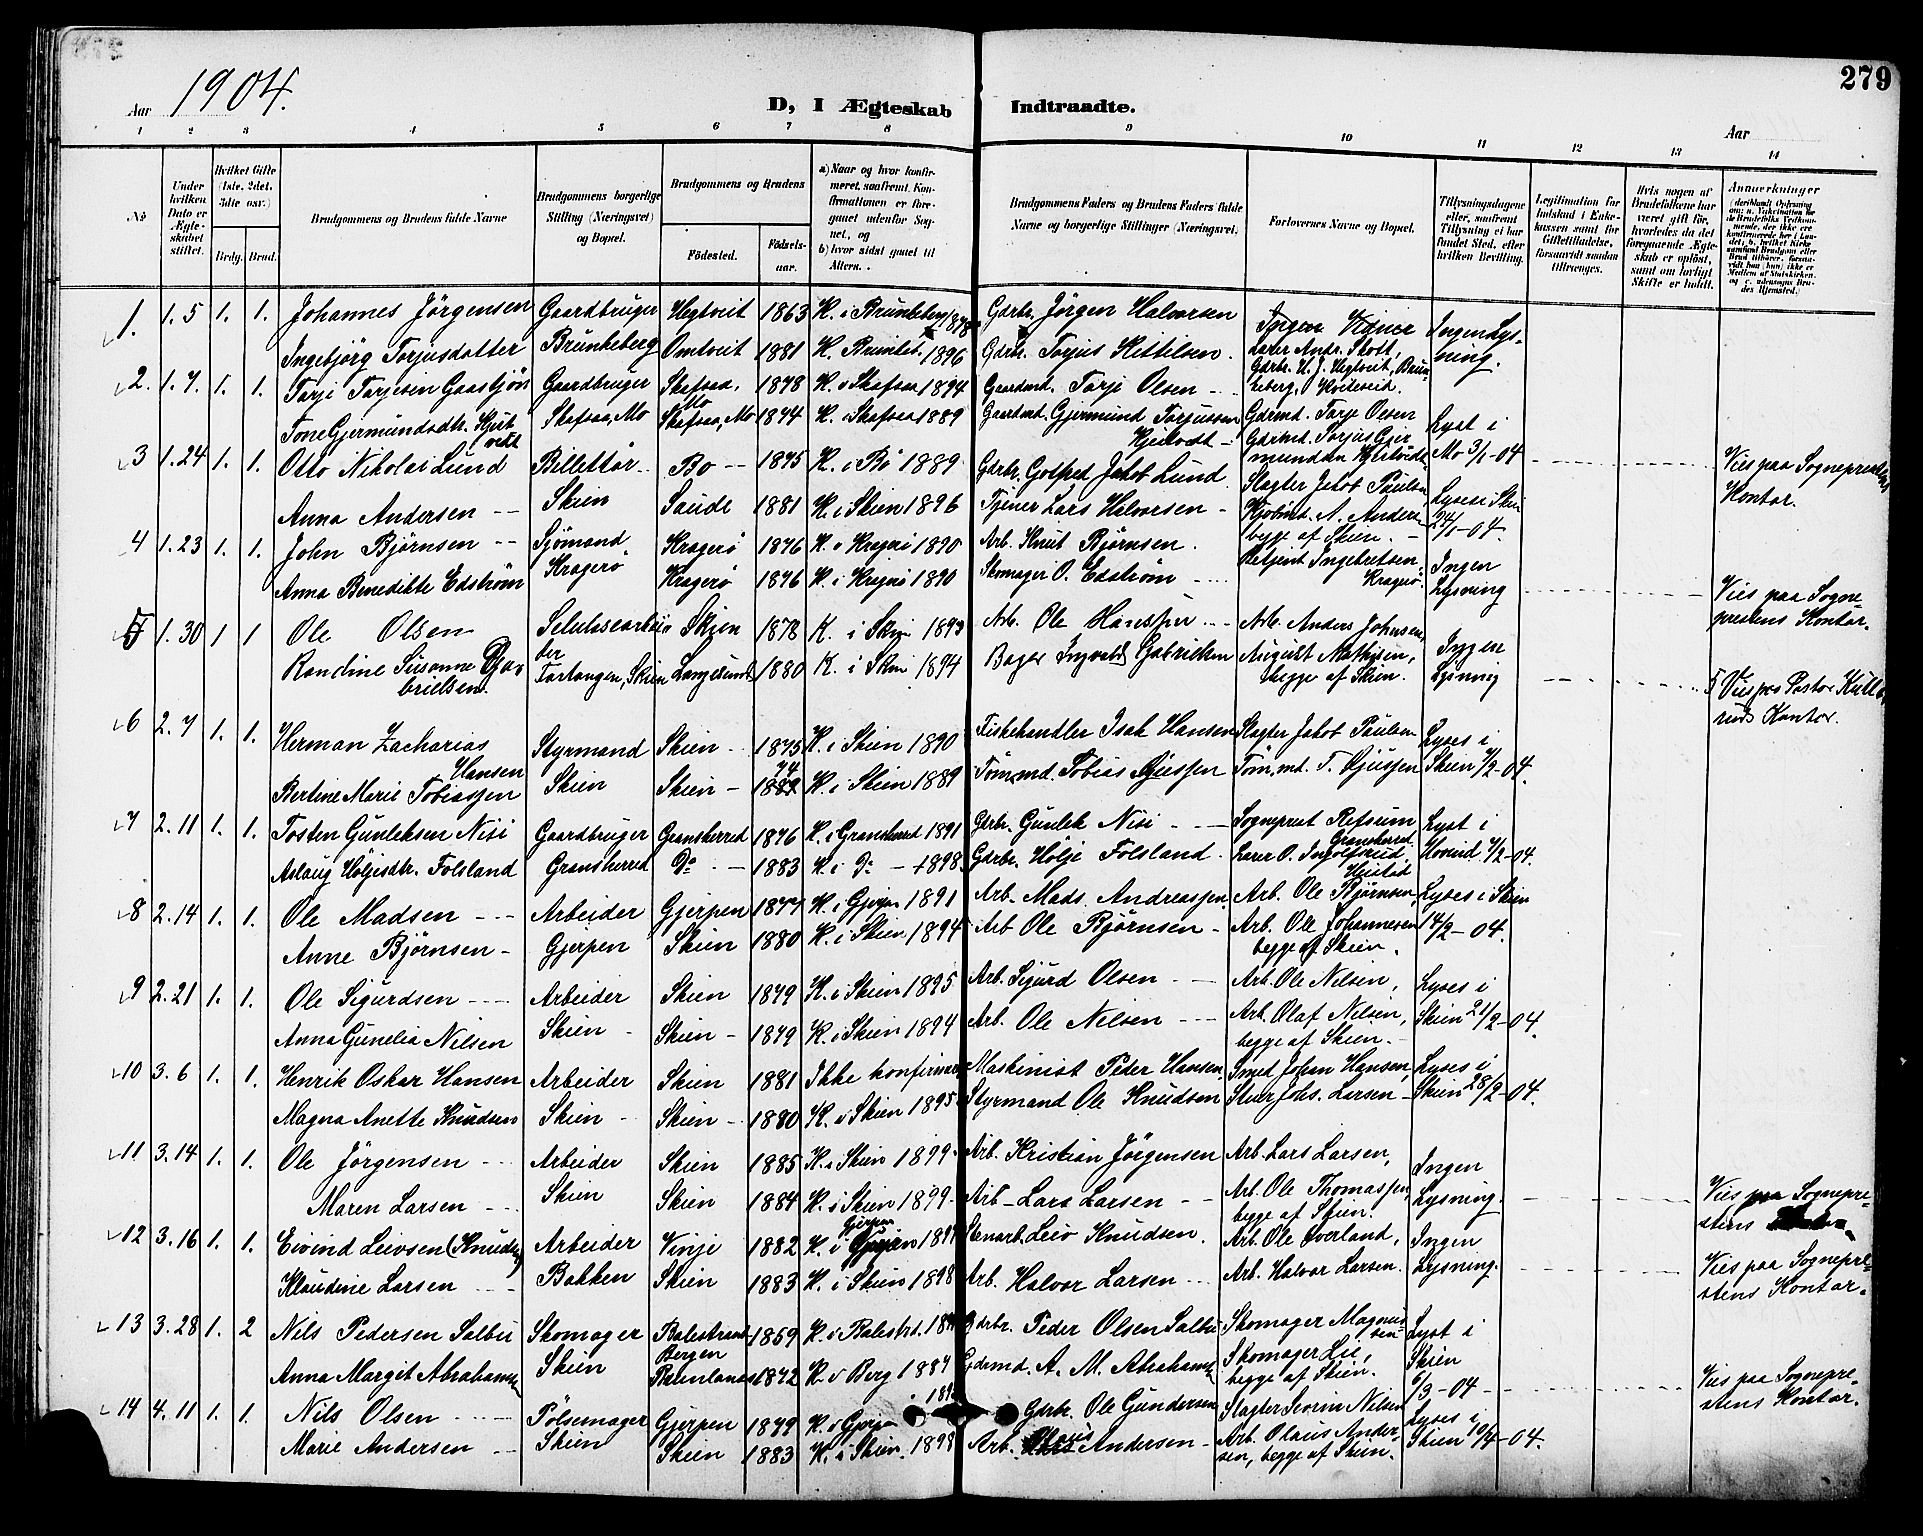 279
Aar 1904.
D, I Ægteskab Indtraadte.
Aar
1 2 3 4 5 6 7 8 9 10 11 12 13 14
No
Under hvilken Dato er Ægteskabet stiftet.
Hvilket Gifte (1ste, 2det, 3die osv.)
Brdg. Brud.
Brudgommens og Brudens fulde Navne
Brudgommens borgerlige Stilling (Næringsvei) og Bopæl.
Brudgommens og Brudens
Fødested.
Fødselsaar.
a) Naar og hvor konfirmeret, saafremt Konfirmationen er foregaaet udenfor Sognet, og
b) hvor sidst gaaet til Alters.
Brudgommens Faders og Brudens Faders fulde Navne og borgerlige Stillinger (Næringsvei).
Forlovernes Navne og Bopæl.
Tillysningsdagene eller, saafremt Tillysning ei har fundet Sted, efter hvilken Bevilling.
Legitimation for Indskud i Enkekassen samt for Giftetilladelse, forsaavidt saadan tiltrænges.
Hvis nogen af Brudefolkene har været gift før, hvorledes da det foregaaende Ægteskab er opløst, samt om lovligt Skifte er holdt.
Anmerkninger
1. 1.5 1. 1. Johannes Jörgensen Gaardbruger Hegtveit 1863 K. i Brunkeberg 1878 Gdrbr. Jörgen Halvorsen Ingen Vidner Ingen Lys-
Ingebjörg Torjusdatter Brunkeberg Omtveit 1881 K. Brunkeb. 1896 Gdrbr. Torjus Kittilsen. Lærer Andr. Skott, ning.
Gdrbr. H. J. Hegtveit, Brun-
keberg, Kviteseid.
2. 1.7. 1. 1. Tarje Tarjeisen Gaastjön Gaardbruger Skafsaa, Mo 1878 K. i Skafsaa 1894 Gaardmd. Tarje Olsen Gdrmd. Tarje Olsen Lyst i
Tone Gjermundsdtr. Skafsaa, Mo Skafsaa, Mo 1874 K. i Skafsaa 1889 Gaardmd. Gjermund Torjussen Gdrmd. Torjus Gjer- Mo 3/1-04
3 1.24 1. 1. Otto Nikolai Lund Billettør Bo 1875 K. i Bö 1889 Gdrbr. Gotfred Jakob Lund Slagter Jakob Paulsen Lyses i Skien Vies paa Sogneprestens
Anna Andersen Skien Saude 1881 K. i Skien 1896 Tjener Lars Halvorsen Kjöbmd. A. Andersen 24/1-04. Kontor.
begge af Skien.
4 1.23 1. 1. John Bjørnsen Sjömand Kragerö 1876 K. i Kragerö 1890 Arb. Knut Bjørnsen. Ingebretsen, Ingen Vies paa Sogne-
Anna Benedikte Edström Kragerö Kragerö 1876 K. i Kragerö 1890 Skomager O. Edström Kragerö Lysning prestens Kontor.
5 1.30 1 1 Ole Olsen Skien 1878 K. i Skien 1893 Arb. Ole Arb. Anders Johnsen, Ingen 5 Vies paa Pastor
Randine Susanne Gabrielsen Skien Langesund 1880 K. i Skien 1894 Bager Ingvald Gabrielsen August Mathisen, Lysning Kontor.
begge af Skien.
6 2.7 1. 1. Herman Zacharias Hansen Styrmand Skien 1875 K. i Skien 1890 Fiskehandler Isak Hansen Slagter Jakob Paulsen Lyses i
Bertine Marie Tobiassen Skien Skien 74 K. i Skien 1889 Tömmd. Tobias Tömmd. T. Skien 7/2-04.
7 2.11 1. 1. Tosten Gunleksen Nisi Gaardbruger Gransherred 1876 K. i Gransherred 1891 Gdrbr. Gunlek Nisi Sogneprest Refsum Gransherred Lyst i
Aslaug Höljesdtr. Folsland Gransherred Do 1883 K. i Do 1898. Gdrbr. Hölje Folsland Lærer O. Ingolfsrud Hovind 7/2-04.
8 2.14 1. 1. Ole Madsen Arbeider Gjerpen 1877 K. i Gjerpen 1891 Arb. Mads Andreassen Arb. Ole Bjørnsen, Lyses i Skien
Anne Bjørnsen Gjerpen Skien 1880 K. i Skien 1894 Arb Ole Bjørnsen Arb. Ole Johannesen 14/2-04.
begge af Skien.
9 2.21 1. 1. Ole Sigurdsen Arbeider Skien 1879 K. i Skien 1895 Arb. Sigurd Olsen Arb. Ole Nilsen, Lyses i
Anna Gunelia Nilsen Skien Skien 1879 K. i Skien 1894 Arb. Ole Nilsen Arb. Olaf Nilsen, Skien 21/2-04.
begge af Skien.
10 3.6 1. 1. Henrik Oskar Hansen Arbeider Skien 1881 Ikke konfirmer Maskinist Peder Hansen Smed Johan Hansen, Lyses i
Magna Anette Knudsen Skien Skien 1880 K. i Skien 1895 Styrmand Ole Knudsen Johs. Larsen Skien 28/2-04.
11 3.14 1. 1. Ole Jörgensen Arbeider Skien 1885 K. i Skien 1899. Arb. Kristian Jörgensen Arb. Lars Larsen, Ingen Vies paa Sognepre-
Maren Larsen Skien Skien 1884 K. i Skien 1899. Arb. Lars Larsen Arb. Ole Thomassen, Lysning. stens
begge af Skien.
12 3.16 1. 1. Eivind Leivsen (Knudsen) Arbeider Vinje 1882 K. i Gjerpen Leiv Knudsen. Arb. Ole Overland, Ingen Vies paa Sognepre-
Klaudine Larsen Bakken Skien 1883 K. i Skien 1898 Arb. Halvor Larsen Arb. Halvor Larsen. Lysning. stens Kontor.
13 3.28 1. 2 Nils Pedersen Salbu Skomager Balestrand Bergen 1859 K. i Balestrd. Gdrbr. Peder Olsen Salbu Skomager Magnussen Lyst i Vies paa Sognepre-
Anna Margit Abrahamsen Skien Brunlanæs 1872 K. i Berg 1887 Gdrmd. A. M. Abrahamsen Skomager Lie, Skien 6/3-04 stens Kontor.
begge af Skien.
14 4.11 1. 1. Nils Olsen Pölsemager Gjerpen 1879 K. i Gjerpen Gdrbr. Ole Gundersen Slagter Severin Nilsen Lyses i
Marie Andersen Skien Skien 1883 K. i Skien. 1898 Arb. Olaus Andersen Arb. Olaus Ander- Skien 10/4-04.
sen, begge af Skien.